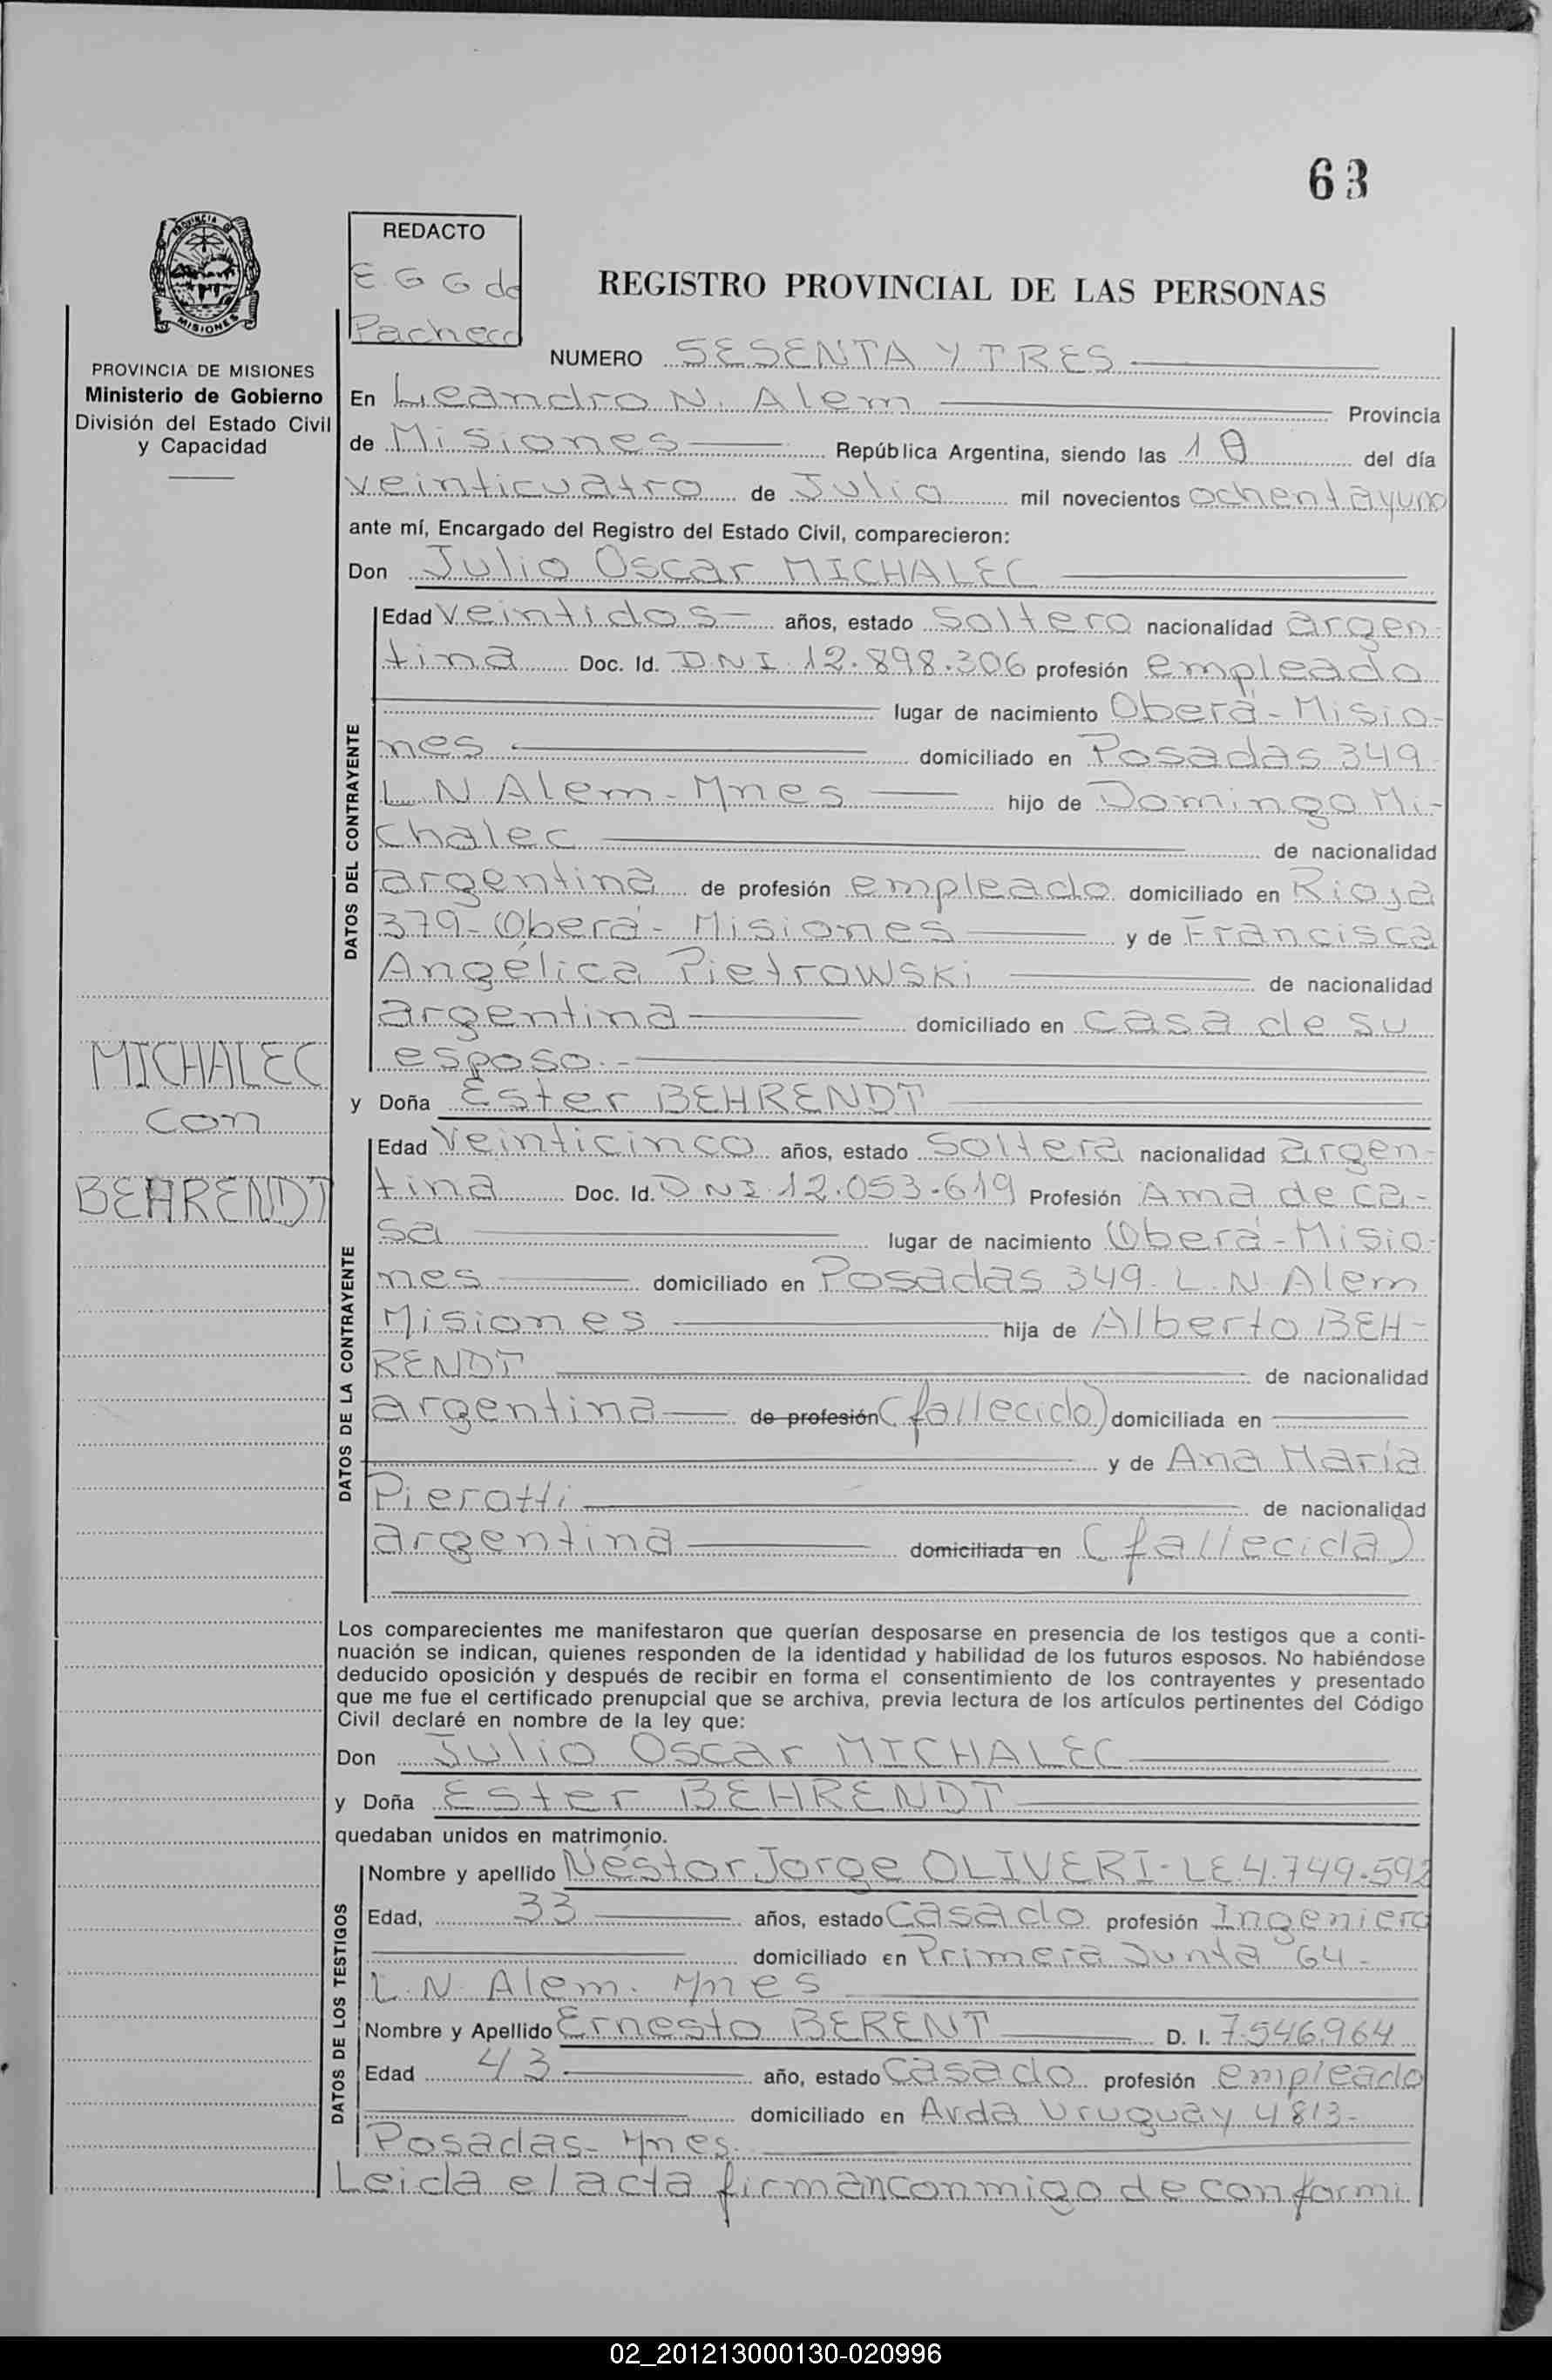 63
PROVINCIA DE
MISIONES
PROVINCIA DE MISIONES
Ministerio de Gobierno
División del Estado Civil
y Capacidad
REDACTO
E G G de
Pacheco
REGISTRO PROVINCIAL DE LAS PERSONAS
NUMERO SESENTA Y TRES
En Leandro N. Alem Provincia
de Misiones República Argentina, siendo las 10 del día
veinticuatro de Julio mil novecientos ochentayuno
ante mí, Encargado del Registro del Estado Civil, comparecieron:
Don Julio Oscar MICHALEC
DATOS DEL CONTRAYENTE
Edad veintidos años, estado soltero nacionalidad argen-
tina Doc. Id. DNI 12.898.306 profesión empleado
lugar de nacimiento Oberá-Misio-
nes domiciliado en Posadas 349-
L N Alem-Mnes hijo de Domingo Mi-
chalec de nacionalidad
argentina de profesión empleado domiciliado en Rioja
379-Oberá-Misiones y de Francisca
Angélica Pietrowski de nacionalidad
argentina domiciliado en casa de su
esposo.-
MICHALEC
con
BEHRENDT
y Doña Ester BEHRENDT
DATOS DE LA CONTRAYENTE
Edad Veinticinco años, estado Soltera nacionalidad argen-
tina Doc. Id. DNI.12.053.619 Profesión Ama de ca-
sa lugar de nacimiento Oberá-Misio-
nes domiciliado en Posadas 349-L.N Alem
Misiones hija de Alberto BEH-
RENDT de nacionalidad
argentina de profesión (fallecido) domiciliada en
y de Ana María
Pierotti de nacionalidad
argentina domiciliada en (fallecida)
Los comparecientes me manifestaron que querían desposarse en presencia de los testigos que a conti-
nuación se indican, quienes responden de la identidad y habilidad de los futuros esposos. No habiéndose
deducido oposición y después de recibir en forma el consentimiento de los contrayentes y presentado
que me fue el certificado prenupcial que se archiva, previa lectura de los artículos pertinentes del Código
Civil declaré en nombre de la ley que:
Don Julio Oscar MICHALEC
y Doña Ester BEHRENDT
quedaban unidos en matrimonio.
DATOS DE LOS TESTIGOS
Nombre y apellido Néstor Jorge OLIVERI-LE 4.749.592
Edad, 33 años, estado Casado profesión Ingeniero
domiciliado en Primera Junta 64-
L.N Alem. Mnes
Nombre y Apellido Ernesto BERENT D. I. 7.546.964
Edad 43 año, estado casado profesión empleado
domiciliado en Avda Uruguay 4813-
Posadas-Mnes.
Leida el acta firman conmigo de conformi
02_201213000130-020996